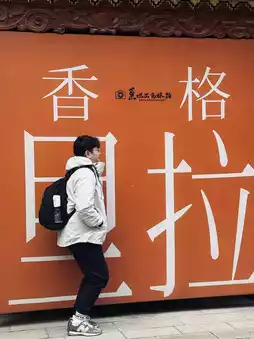 香格
里拉